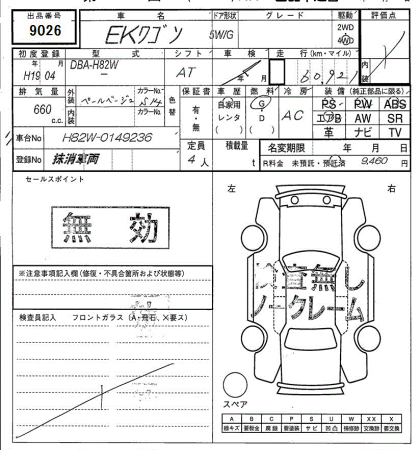 出品番号 車名 ドア形状 グレード 駆動 評価点
9026 EKワゴン 5W/G 2WD 4WD
内装
初度登録 型式 シフト 車検 走行(km・マイル)
H19年04月 DBA-H82W AT 年 月
排気量 外装 カラーNo. 色替 保証書 車歴 燃料 冷房 装備(純正部品に限る)
660 c.c. ペールベージュ S14 有・無 自家用 G AC PS PW ABS
内装 カラーNo. レンタ D エアB AW SR
( ) ( ) 革 ナビ TV
車台No H82W-0149236 定員 積載量 名変期限 年 月 日
登録No 抹消車両 4人 t R料金 未預託・預託済 9,460 円
セールスポイント 左 右
無効
※注意事項記入欄(修復・不具合箇所および状態等)
検査無し
ノークレーム
検査員記入 フロントガラス(A・飛石、X要ス)
スペア
A B C P S U W XX X
線キズ 要板金 腐録 要塗装 サビ 凹凸 補修跡 交換跡 要交換